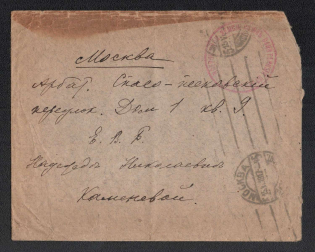 Москва
Арбат. Спасо-песковскій
переулок. Дом 1 кв. 9.
Е. В. Б.
Надежде Николаевне
МОСКВА